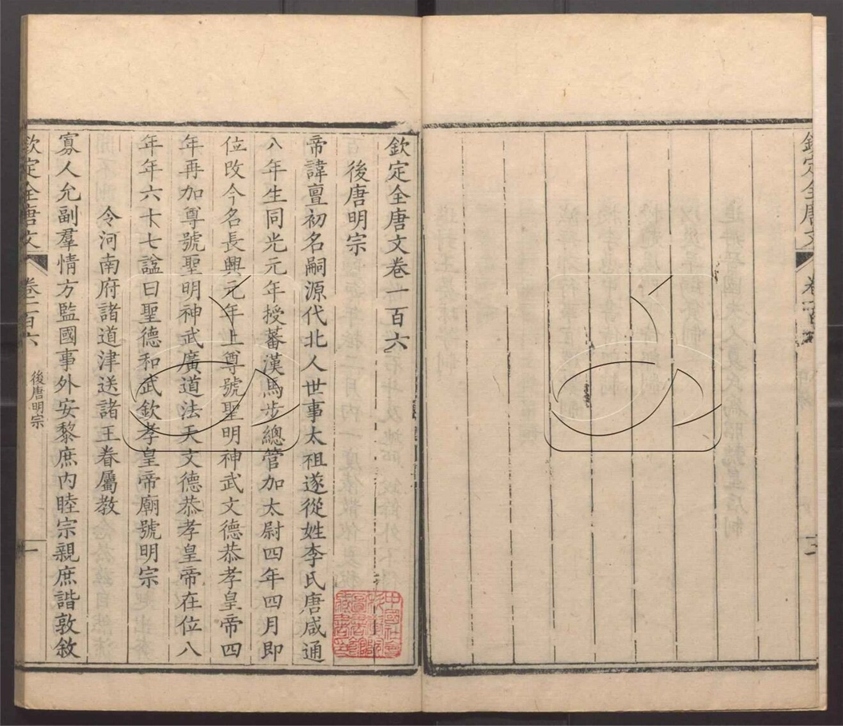 欽定全唐文卷一百六
後唐明宗
帝諱亶初名嗣源代北人世事太祖遂從姓李氏唐咸通
八年生同光元年授蕃漢馬步總管加太尉四年四月即
位改今名長興元年上尊號聖明神武文德恭孝皇帝四
年再加尊號聖明神武廣道法天文德恭孝皇帝在位八
年年六十七諡曰聖德和武欽孝皇帝廟號明宗
令河南府諸道津送諸王眷屬教
寡人允副羣情方監國事外安黎庶內睦宗親庶諧敦敘
欽定全唐文
卷一百六
後唐明宗
一
欽定全唐文